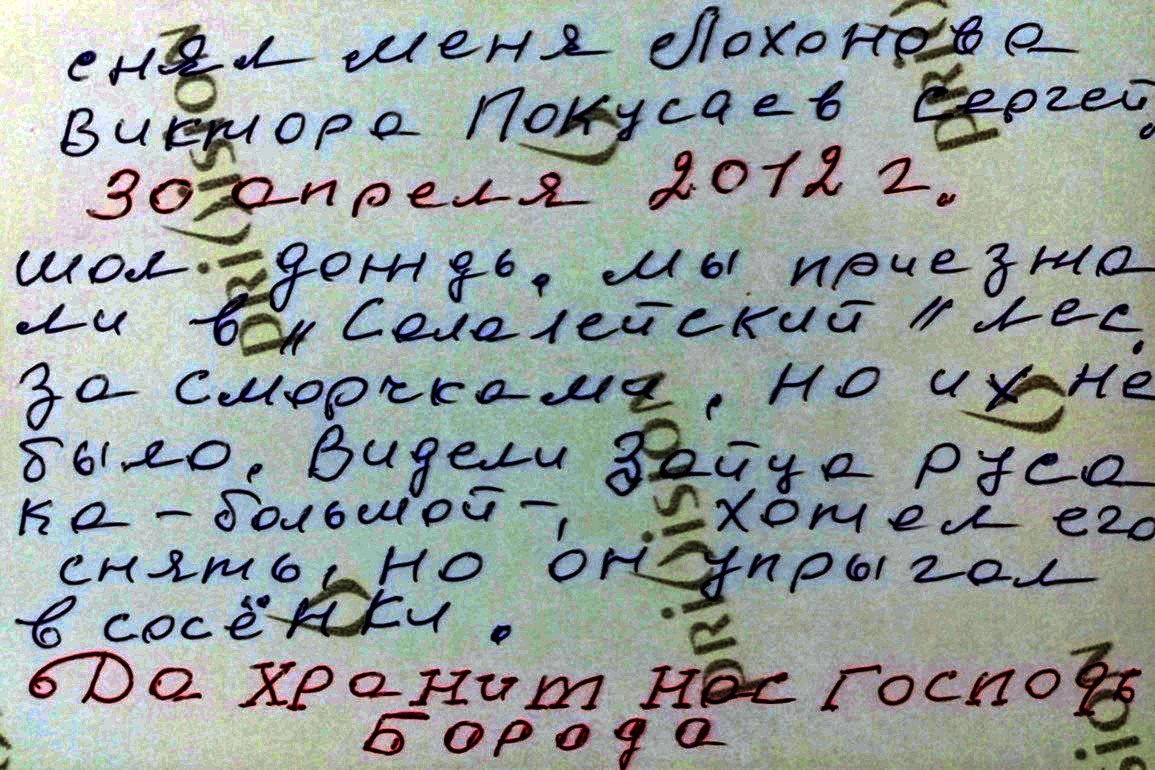 снял меня Лохонова
Виктора Покусаев Сергей,
30 апреля 2012 г.
шол дождь, мы приезжа
ли в "Салалейский" лес.
за сморчками, но их не
было. Видели Зайца руса
ка-большой-, хотел его
снять, но он упрыгал
в сосёнки.
Да хранит нас Господь
Борода